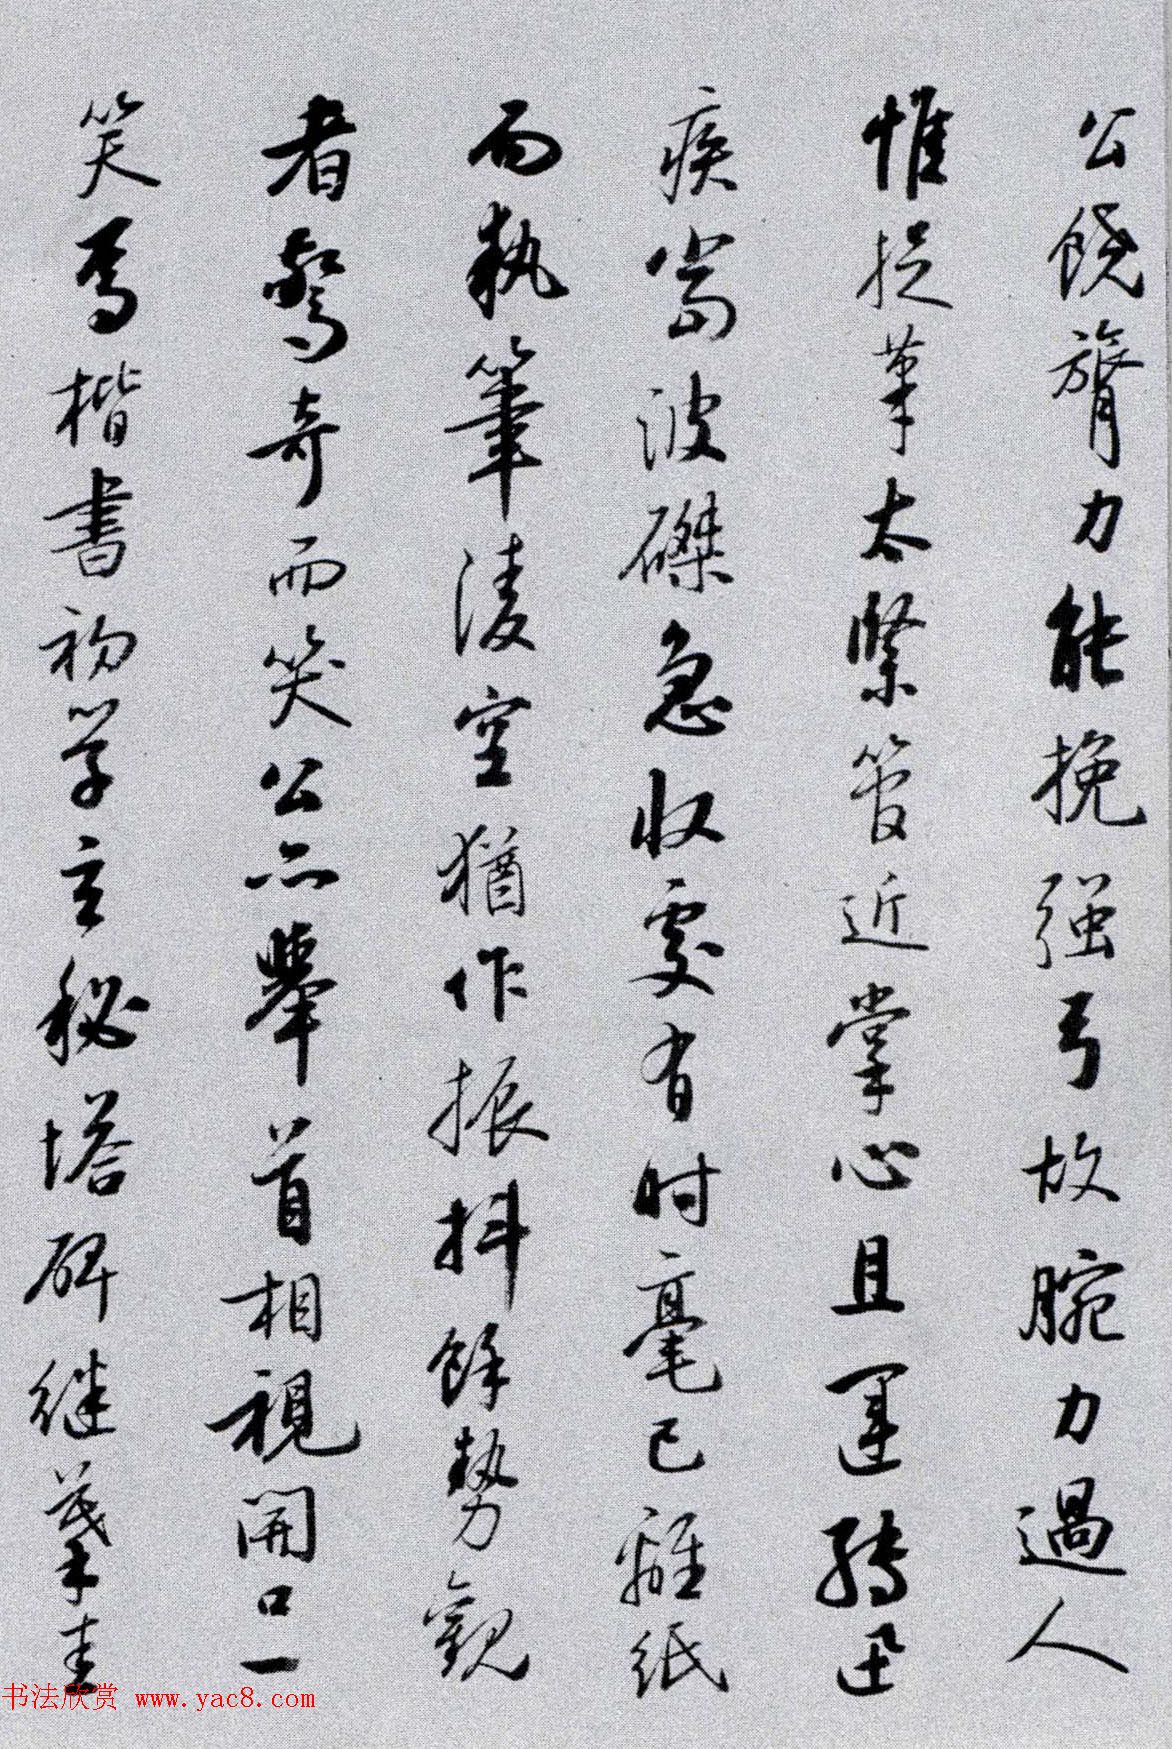 公饒膂力能挽强弓故腕力過人
惟捉筆太緊管近掌心且運轉迅
疾當波磔急收處有时毫已離紙
而執筆淩空猶作振抖餘勢觀
者驚奇而笑公亦舉首相視開口一
笑焉楷書初學玄秘塔碑継摹圭
书法欣赏 www.yac8.com